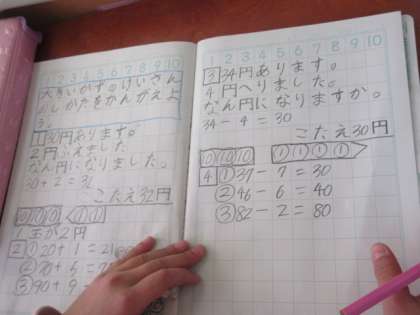 1 2 3 4 5 6 7 8 9 10
大きいかずのけいさん
のしかたをかんがえよ
う。
1 30円あります。
2円ふえました。
なん円になりましたか。
30+2=32
こたえ32円
10 10 10 1 1
1玉が2円
2 ①20+1=21
②70+5=7
③90+9=
1 2 3 4 5 6 7 8 9 10
3 34円あります。
4円へりました。
なん円になりますか。
34-4=30
こたえ30円
10 10 10 1 1 1 1
4 ①37-7=30
②46-6=40
③82-2=80